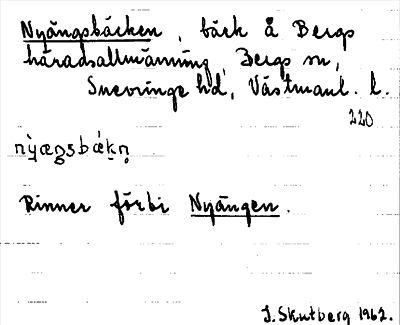 Nyängsbäcken, bäck å Bergs
häradsallmänning, Bergs sn,
Snevringe hd, Västmanl. l.
220
nỳæŋsbǽkn̥
Rinner förbi Nyängen.
J. Skutberg 1962.